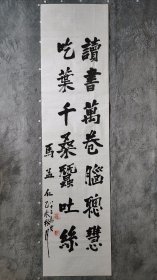 讀書萬卷腦聰慧
吃葉千桑蠶吐絲
馬益